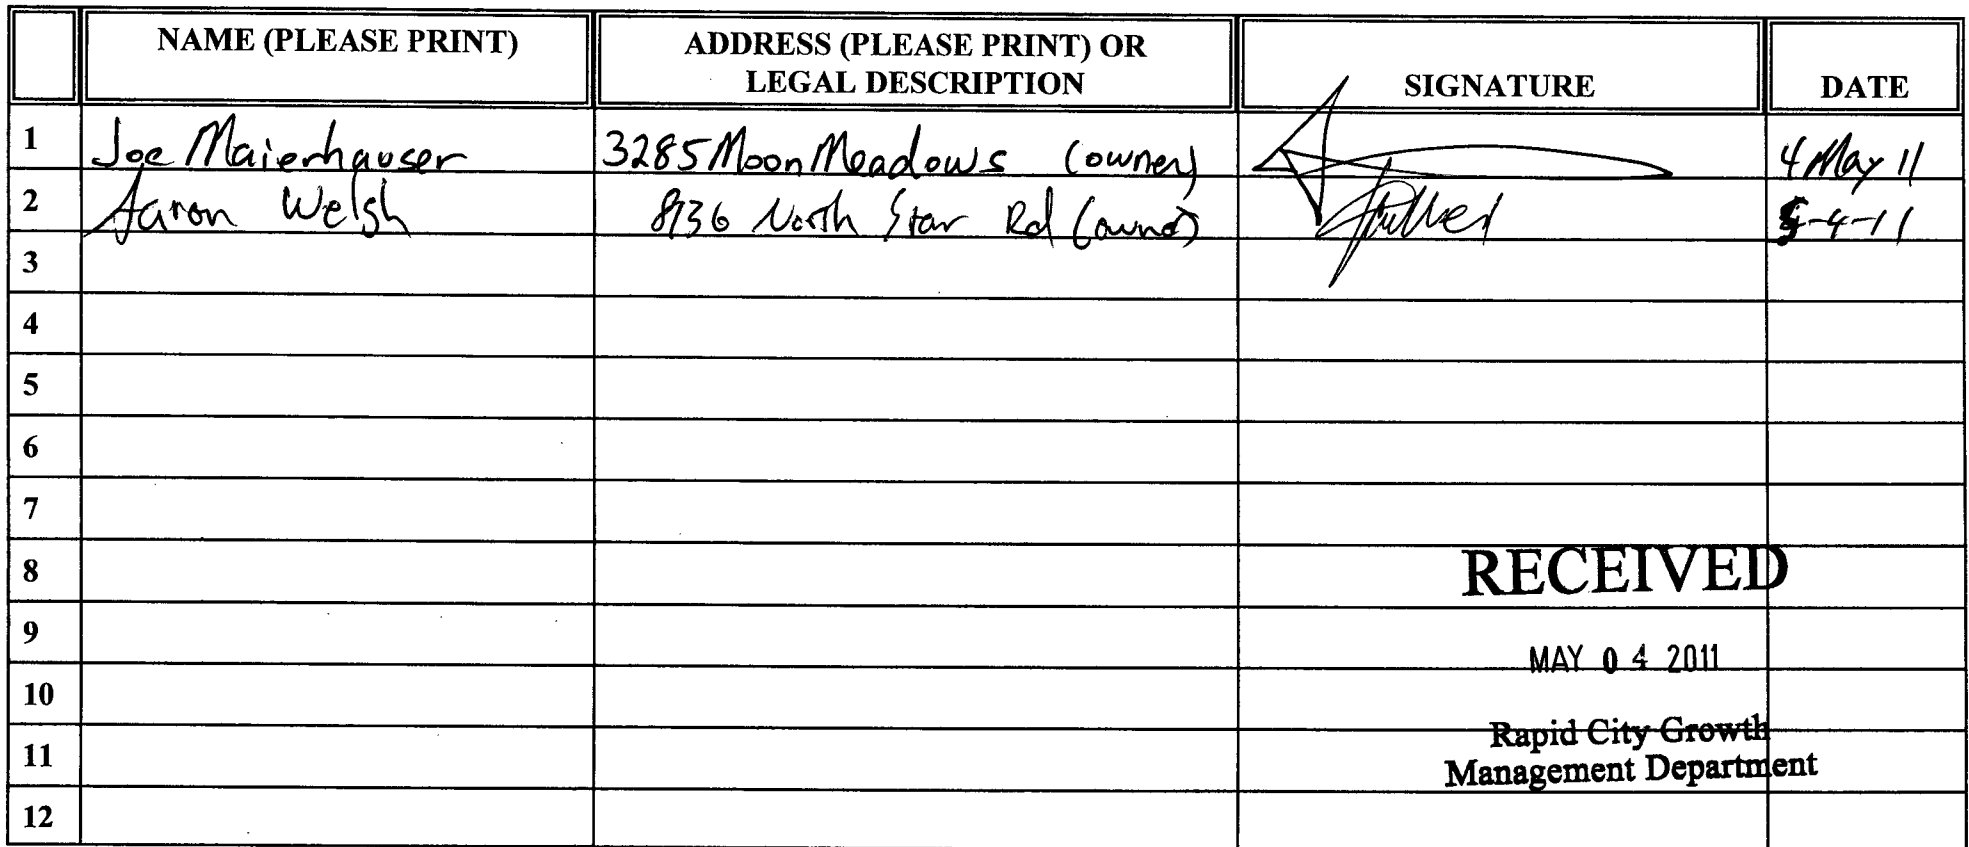 NAME (PLEASE PRINT) ADDRESS (PLEASE PRINT) OR
LEGAL DESCRIPTION SIGNATURE DATE
1 Joe Maierhauser 3285 Moon Meadows (owner) 4 May 11
2 Aaron Welsh 8936 North Star Rd (owner) 5-4-11
3
4
5
6
7
8 RECEIVED
9
MAY 04 2011
10
Rapid City Growth
11
Management Department
12